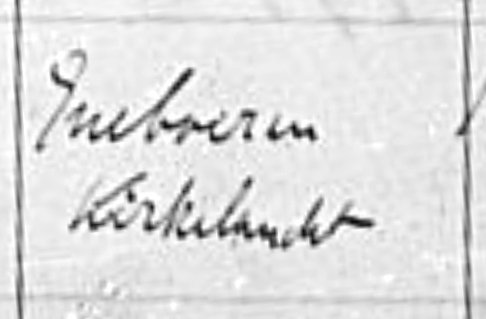 Eneboeren
Kirkelandet